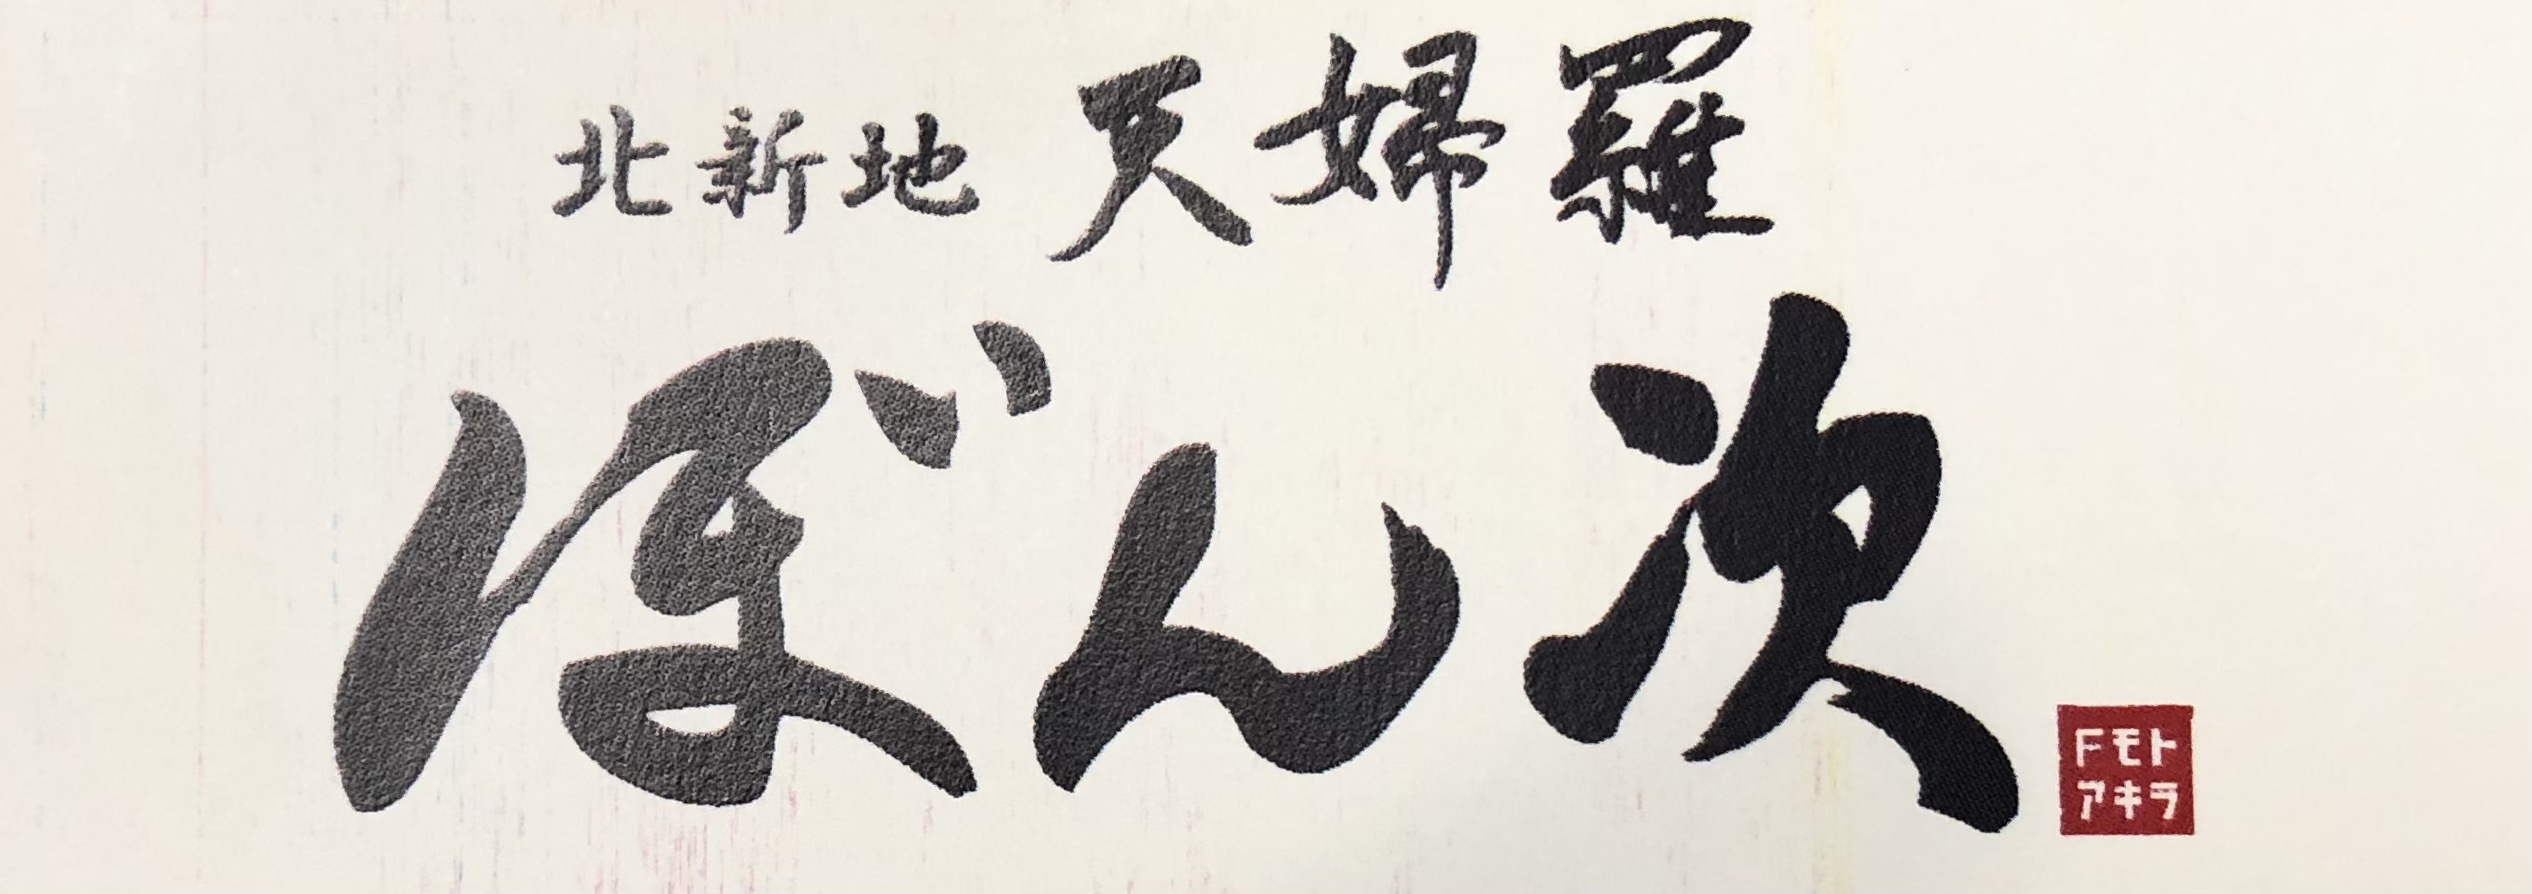 北新地 天婦羅
ぼん次
Fモト
アキラ